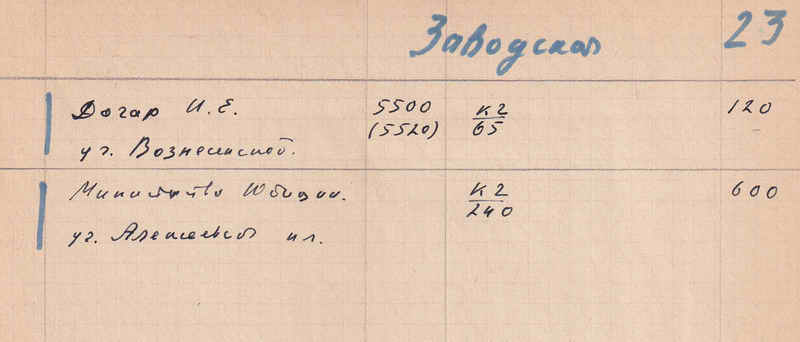 Заводская 23
Догар И. Е. 5500 К2 120
(5520) 65
уг. Вознесенской.
Министерство Юстиции. К2 600
240
уг. Алексеевской пл.